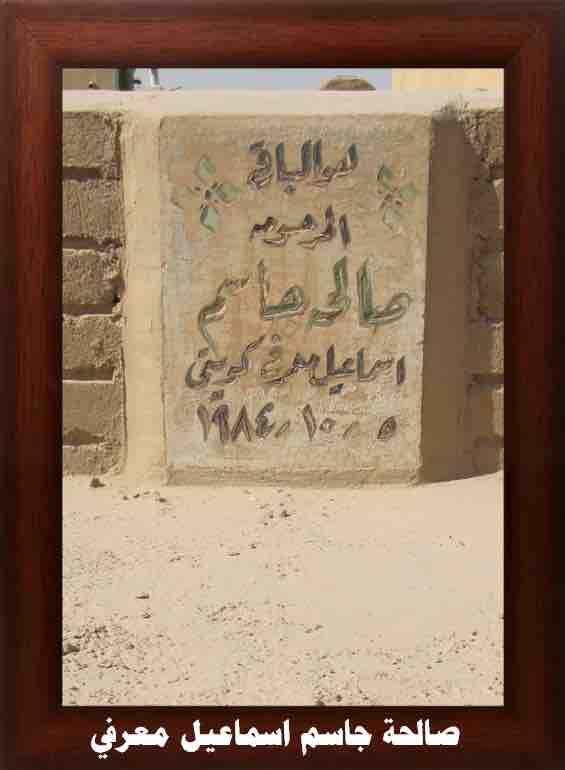 هو الباقي
المرحومه
صالحه جاسم
اسماعيل معرفي كويتي
١٩٨٤/١٠/٥
صالحة جاسم اسماعيل معرفي